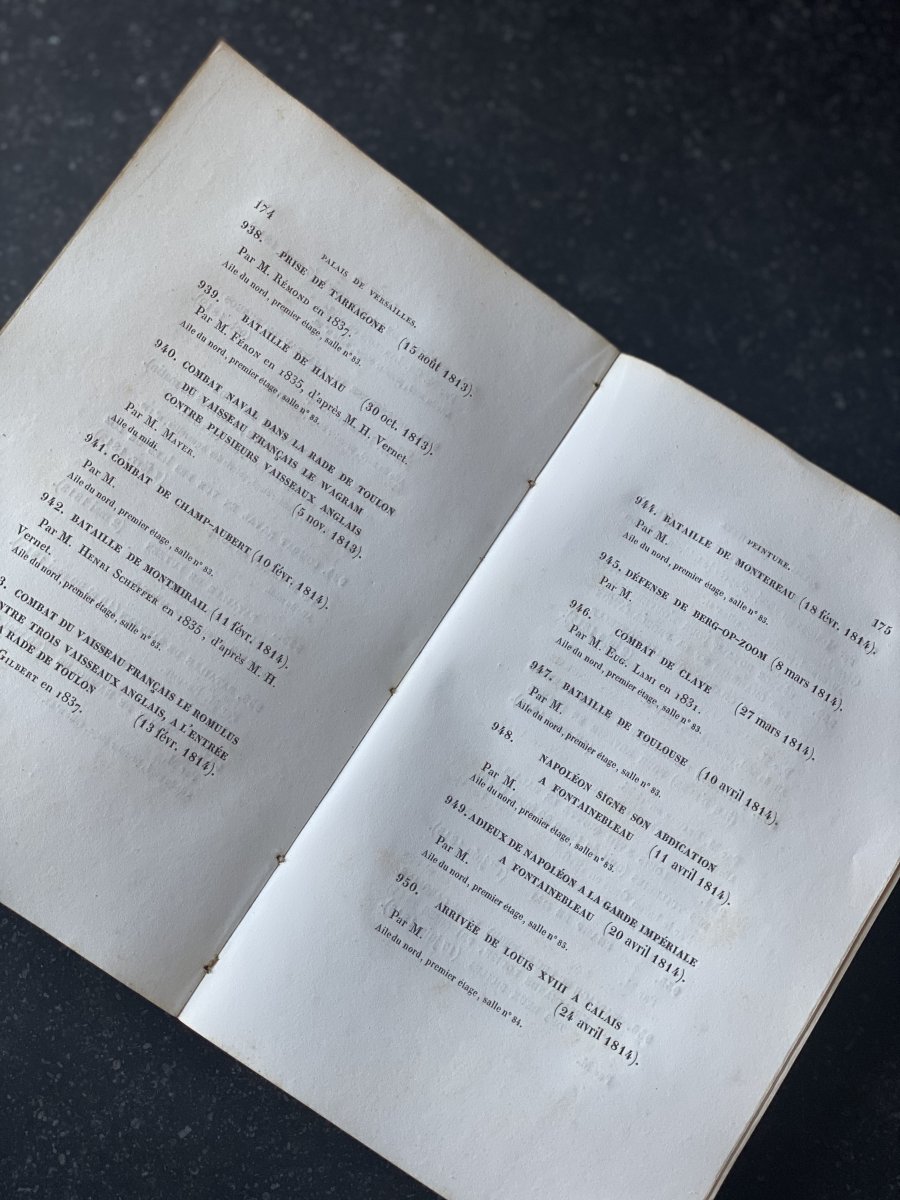 174
PALAIS DE VERSAILLES.
938. PRISE DE TARRAGONE
(15 août 1813).
Par M. RÉMOND en 1837.
Aile du nord, premier étage, salle n° 83.
939. BATAILLE DE HANAU (30 oct. 1813).
Par M. FÉRON en 1835, d'après M. H. Vernet.
Aile du nord, premier étage, salle n° 83.
940. COMBAT NAVAL DANS LA RADE DE TOULON
DU VAISSEAU FRANÇAIS LE WAGRAM
CONTRE PLUSIEURS VAISSEAUX ANGLAIS
(5 nov. 1813).
Par M. MAYER.
Aile du midi.
941. COMBAT DE CHAMP-AUBERT (10 févr. 1814).
Par M.
Aile du nord, premier étage, salle n° 83.
942. BATAILLE DE MONTMIRAIL (11 févr. 1814).
Par M. HENRI SCHEFFER en 1835, d'après M. H.
Vernet.
Aile du nord, premier étage, salle n° 83.
3. COMBAT DU VAISSEAU FRANÇAIS LE ROMULUS
NTRE TROIS VAISSEAUX ANGLAIS, A L'ENTRÉE
A RADE DE TOULON
(13 févr. 1814).
GILBERT en 1837.
PEINTURE.
175
944. BATAILLE DE MONTEREAU (18 févr. 1814).
Par M.
Aile du nord, premier étage, salle n° 83.
945. DÉFENSE DE BERG-OP-ZOOM (8 mars 1814).
Par M.
946. COMBAT DE CLAYE
(27 mars 1814).
Par M. EUG. LAMI en 1831.
Aile du nord, premier étage, salle n° 83.
947. BATAILLE DE TOULOUSE (10 avril 1814).
Par M.
Aile du nord, premier étage, salle n° 83.
948. NAPOLÉON SIGNE SON ABDICATION
A FONTAINEBLEAU (11 avril 1814).
Par M.
Aile du nord, premier étage, salle n° 83.
949. ADIEUX DE NAPOLÉON A LA GARDE IMPÉRIALE
A FONTAINEBLEAU (20 avril 1814).
Par M.
Aile du nord, premier étage, salle n° 83.
950. ARRIVÉE DE LOUIS XVIII A CALAIS
(24 avril 1814).
Par M.
Aile du nord, premier étage, salle n° 84.